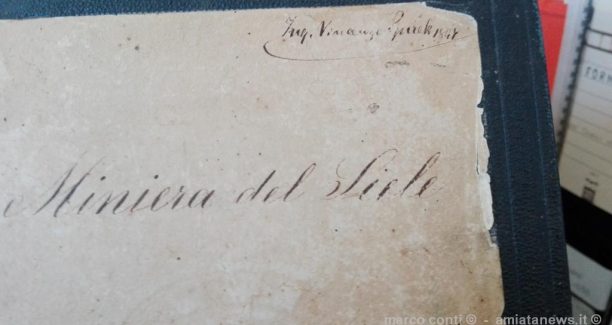 Ing. Vincenzo Spirek 1897
Miniera del Siele
FORM
marco conti © - amiatanews.it ©